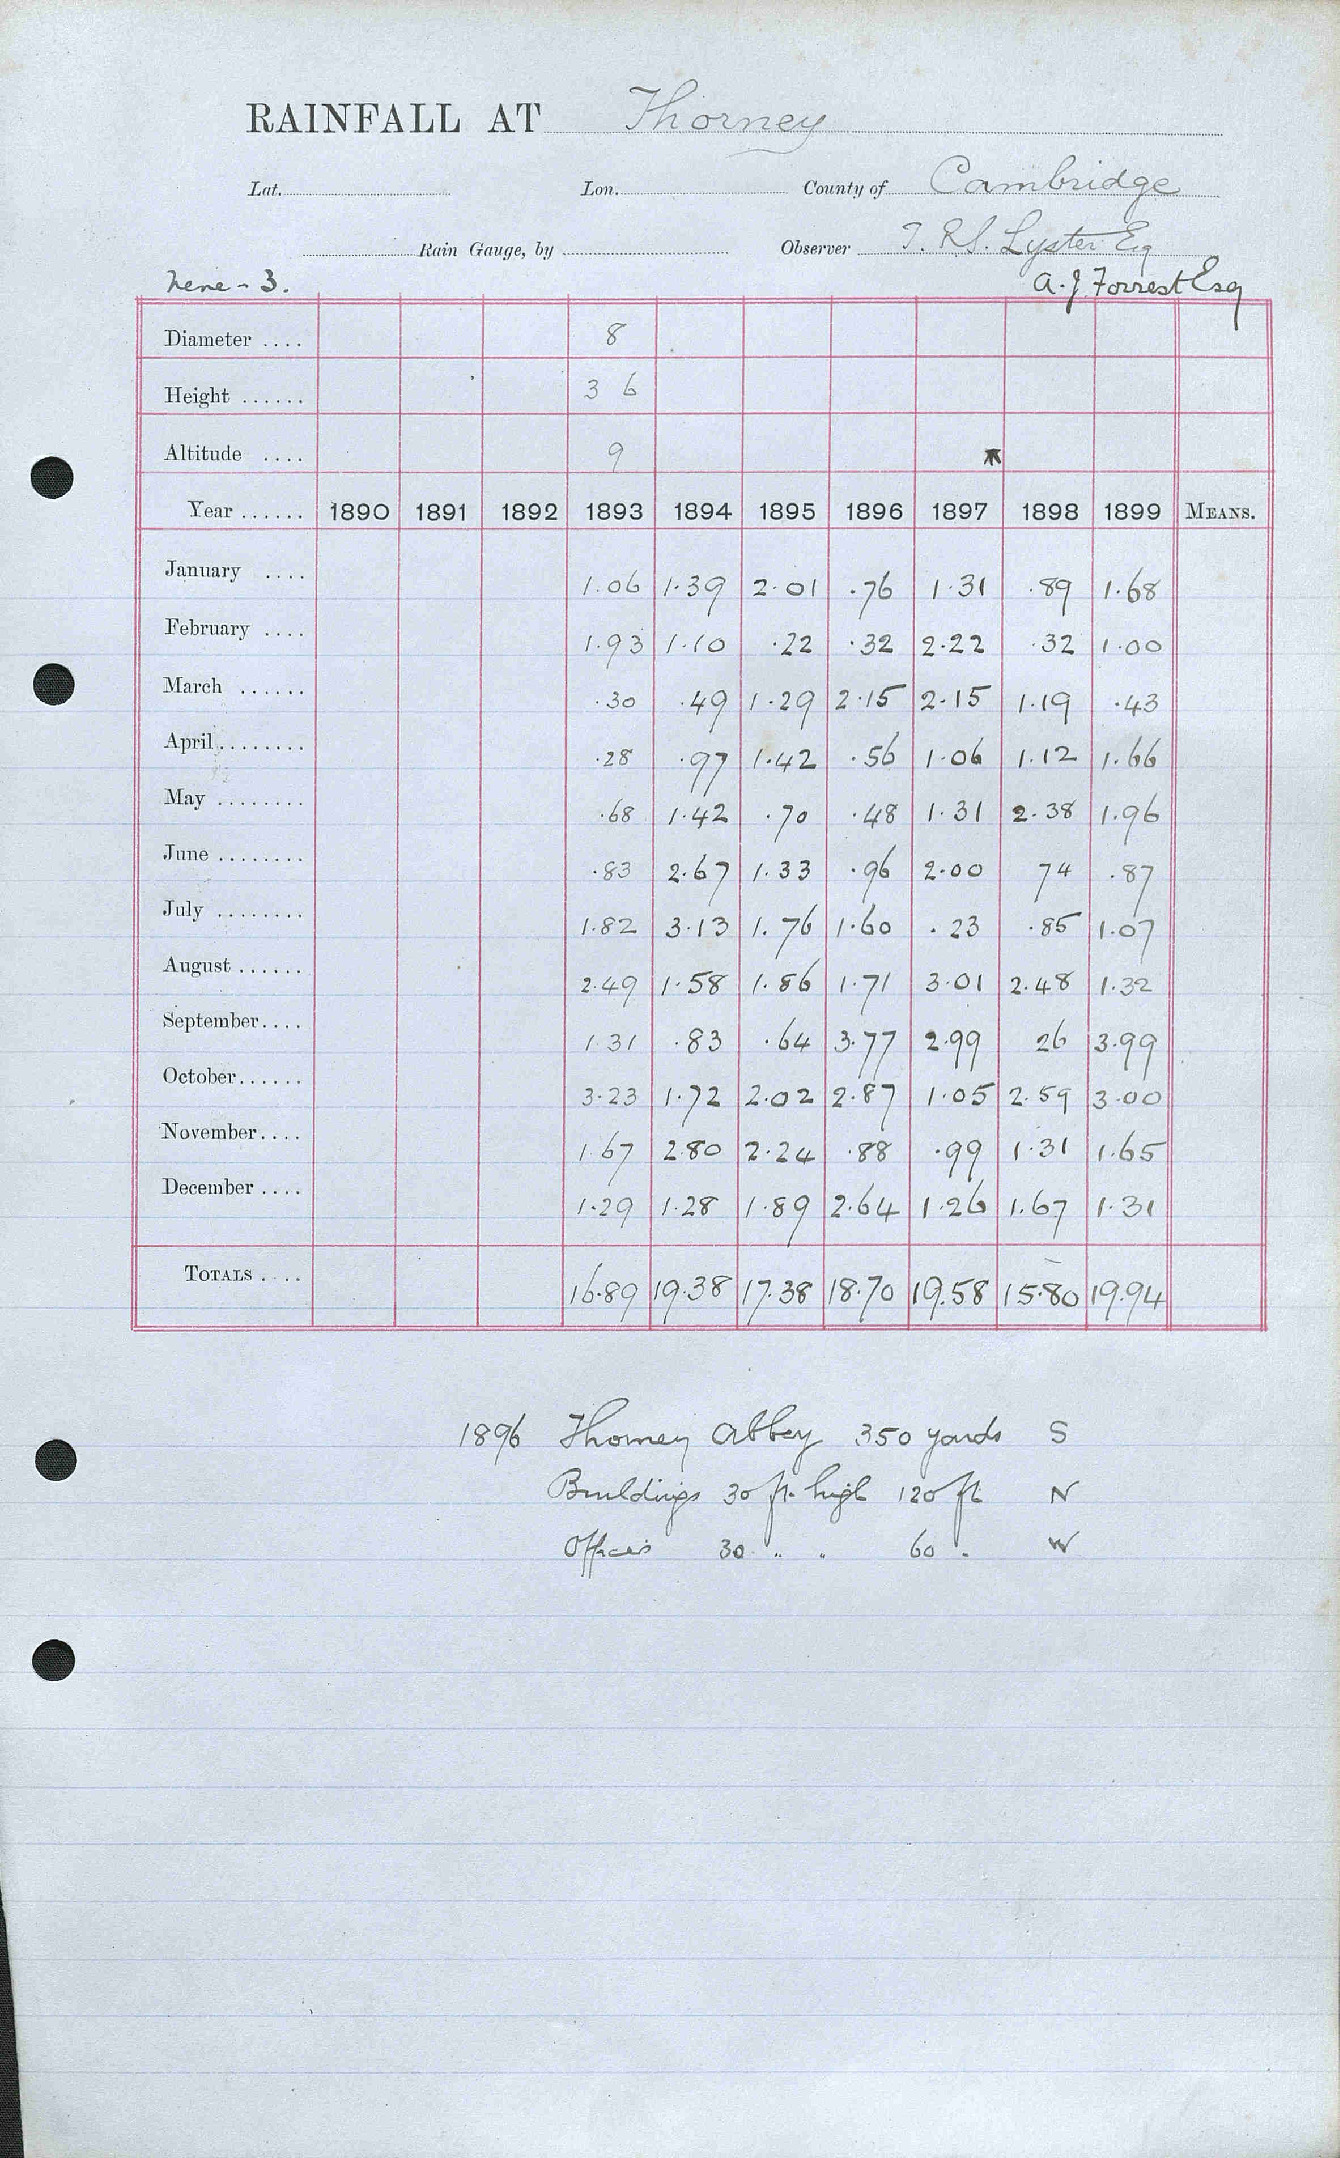 RAINFALL AT Thorney
Lat. Lon. County of Cambridge
Rain Gauge, by Observer T. R. S. Lyster Esq
Nene - 3. A. J. Forrest Esq
Diameter .... 8
Height ...... 3 6
Altitude .... 9
Year ...... 1890 1891 1892 1893 1894 1895 1896 1897 1898 1899 MEANS.
January .... 1.06 1.39 2.01 .76 1.31 .89 1.68
February .... 1.93 1.10 .22 .32 2.22 .32 1.00
March ...... .30 .49 1.29 2.15 2.15 1.19 .43
April ........ .28 .97 1.42 .56 1.06 1.12 1.66
May ........ .68 1.42 .70 .48 1.31 2.38 1.96
June ........ .83 2.67 1.33 .96 2.00 74 .87
July ........ 1.82 3.13 1.76 1.60 .23 .85 1.07
August ...... 2.49 1.58 1.86 1.71 3.01 2.48 1.32
September .... 1.31 .83 .64 3.77 2.99 26 3.99
October ...... 3.23 1.72 2.02 2.87 1.05 2.59 3.00
November .... 1.67 2.80 2.24 .88 .99 1.31 1.65
December .... 1.29 1.28 1.89 2.64 1.26 1.67 1.31
TOTALS .... 16.89 19.38 17.38 18.70 19.58 15.80 19.94
1896 Thorney Abbey 350 yards S
Buildings 30 ft. high 120 ft N
Offices 30 " " 60 " W